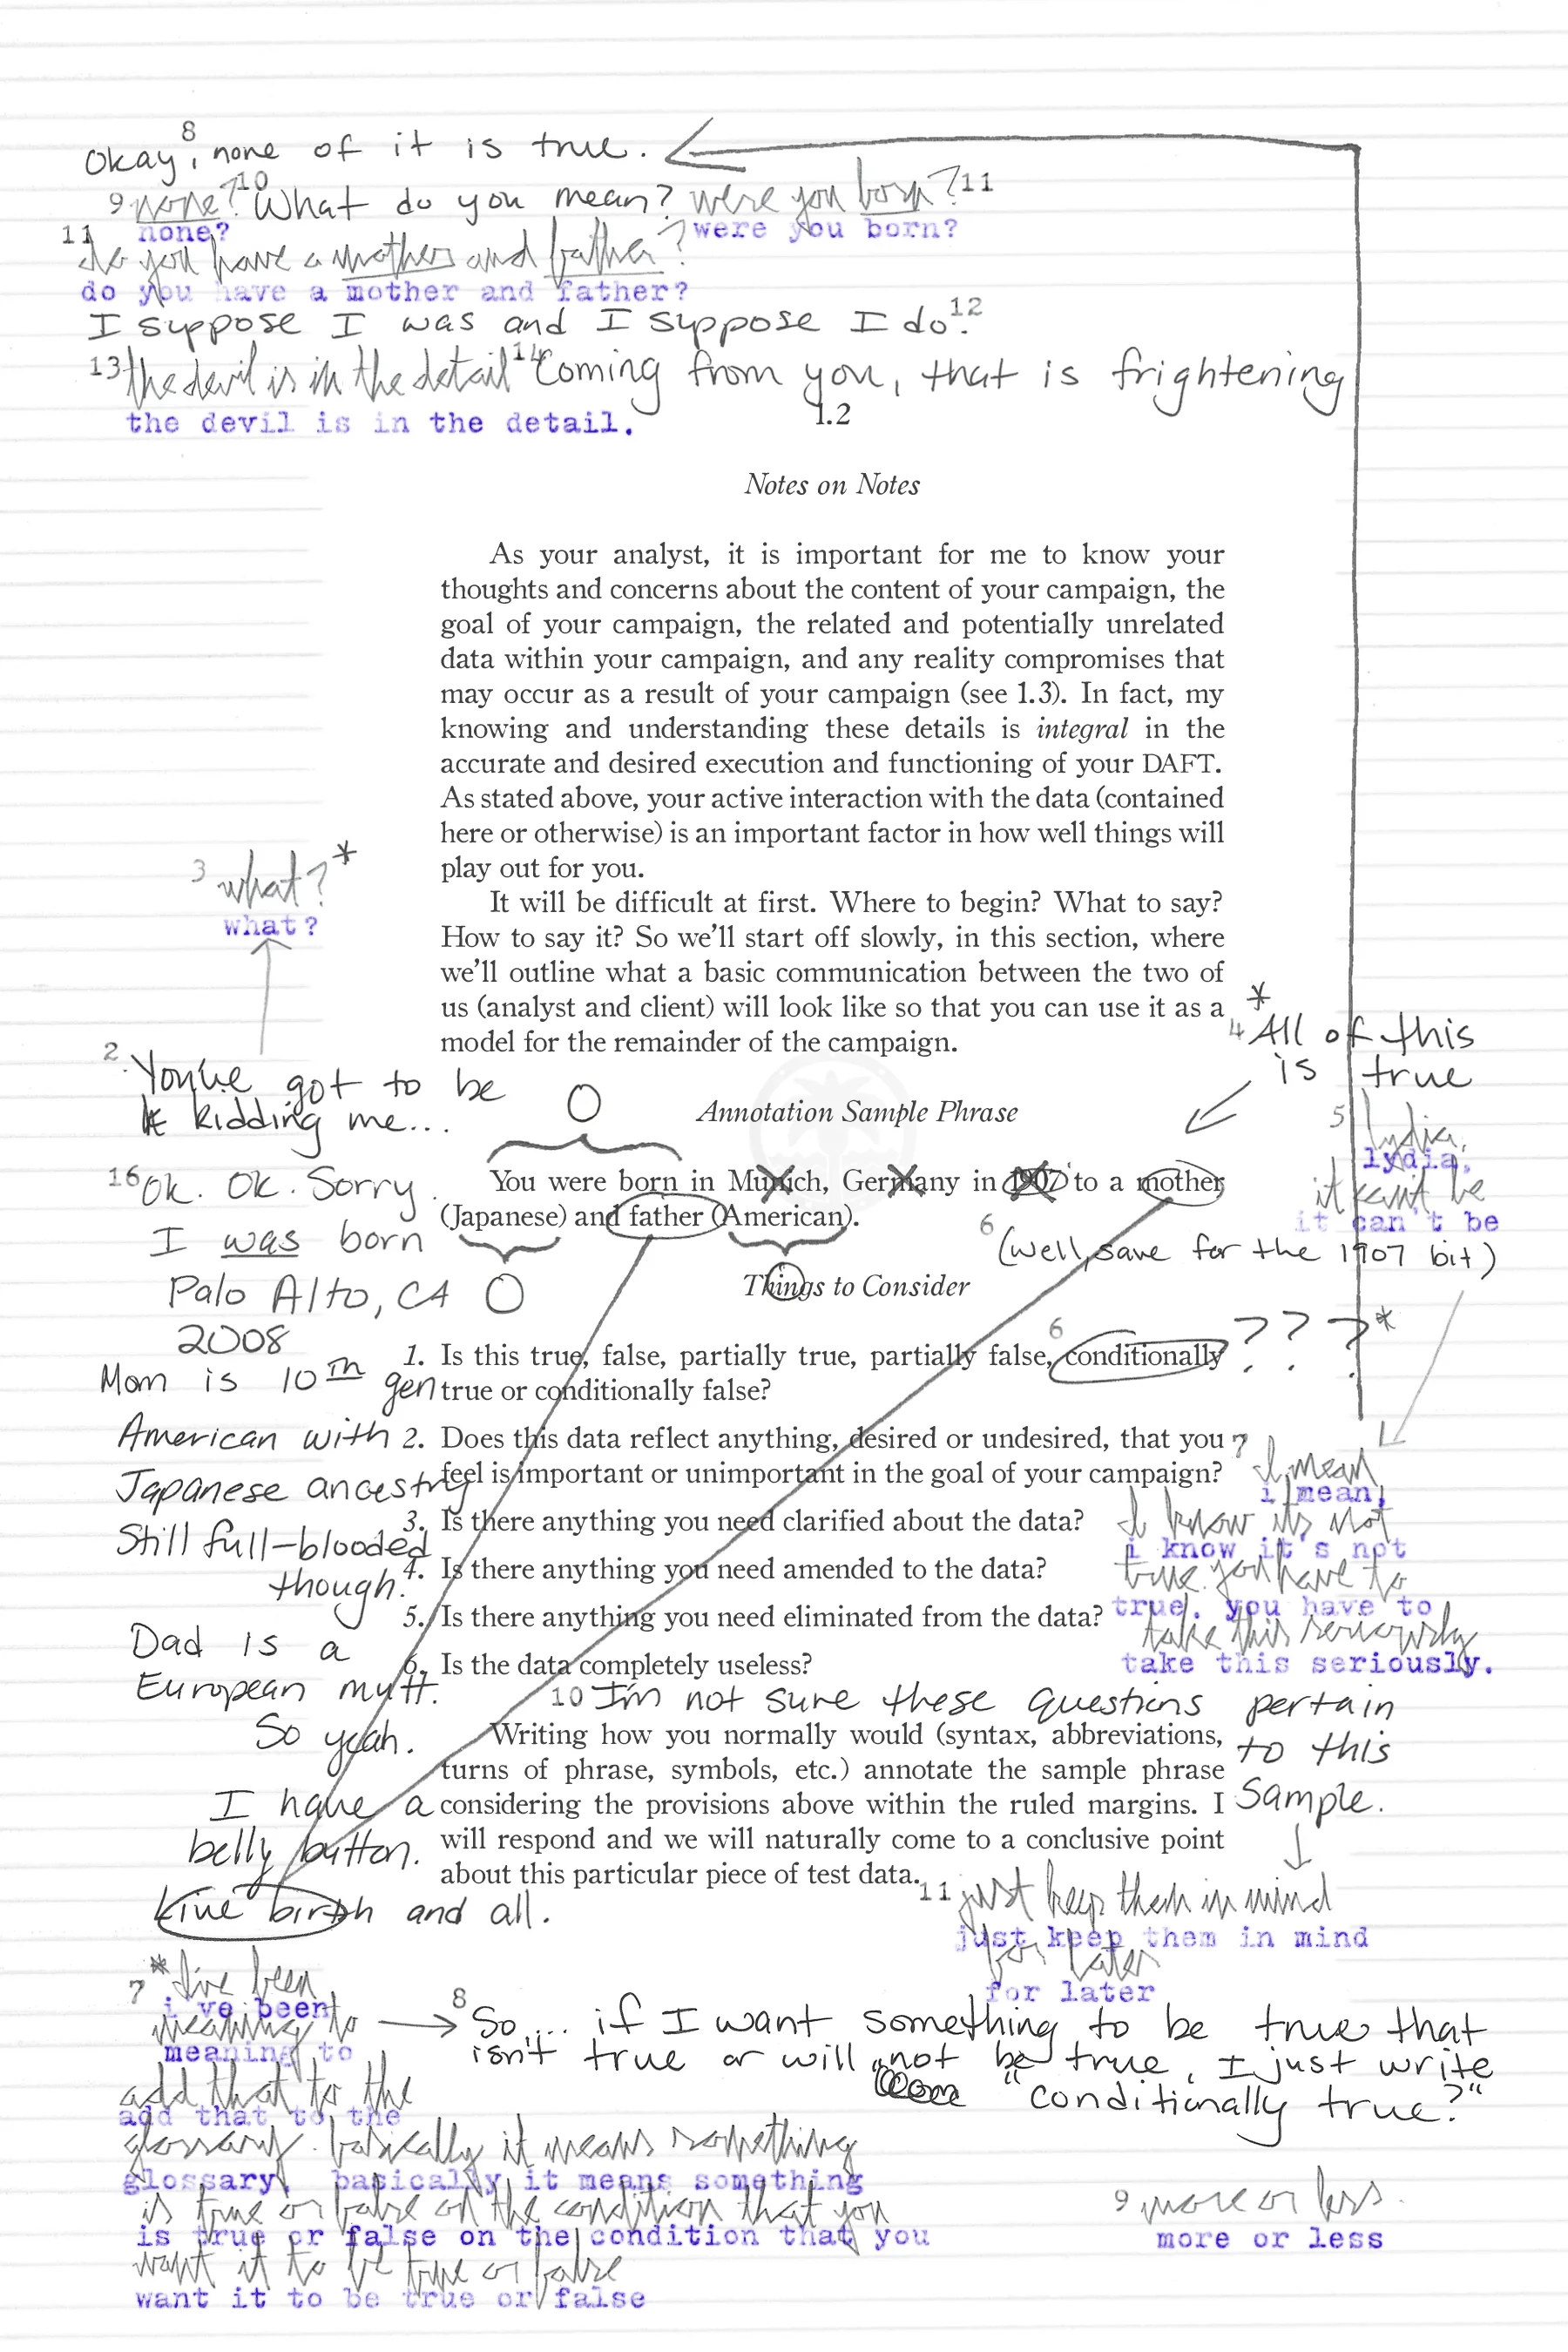 Okay, 8 none of it is true.
9 none? 10 What do you mean? were you born? 11
none? were you born?
11 do you have a mother and father?
do you have a mother and father?
I suppose I was and I suppose I do. 12
13 the devil is in the detail 14 Coming from you, that is frightening
the devil is in the detail.
1.2
Notes on Notes
As your analyst, it is important for me to know your
thoughts and concerns about the content of your campaign, the
goal of your campaign, the related and potentially unrelated
data within your campaign, and any reality compromises that
may occur as a result of your campaign (see 1.3). In fact, my
knowing and understanding these details is integral in the
accurate and desired execution and functioning of your DAFT.
As stated above, your active interaction with the data (contained
here or otherwise) is an important factor in how well things will
play out for you.
It will be difficult at first. Where to begin? What to say?
How to say it? So we'll start off slowly, in this section, where
we'll outline what a basic communication between the two of
us (analyst and client) will look like so that you can use it as a
model for the remainder of the campaign.
3 what?*
what?
2. You've got to be
kidding me...
*
4 All of this
is true
Annotation Sample Phrase
You were born in Munich, Germany in 1907 to a mother
(Japanese) and father (American).
5 lydia,
lydia,
it can't be
it can't be
6 (well, save for the 1907 bit)
16 Ok. Ok. Sorry.
I was born
Palo Alto, CA
2008
Mom is 10th gen
American with
Japanese ancestry
Still full-blooded
though.
Dad is a
European mutt.
So yeah.
I have a
belly button.
Live birth and all.
Things to Consider
1. Is this true, false, partially true, partially false, conditionally
true or conditionally false?
6 ? ? ?*
2. Does this data reflect anything, desired or undesired, that you
feel is important or unimportant in the goal of your campaign?
3. Is there anything you need clarified about the data?
4. Is there anything you need amended to the data?
5. Is there anything you need eliminated from the data?
6. Is the data completely useless?
7 I mean
i mean,
I know it's not
i know it's not
true. you have to
true. you have to
take this seriously
take this seriously.
10 I'm not sure these questions pertain
to this
sample.
Writing how you normally would (syntax, abbreviations,
turns of phrase, symbols, etc.) annotate the sample phrase
considering the provisions above within the ruled margins. I
will respond and we will naturally come to a conclusive point
about this particular piece of test data.
11 just keep them in mind
just keep them in mind
for later
for later
7 *I've been
i've been
meaning to
meaning to
add that to the
add that to the
glossary. basically it means something
glossary. basically it means something
is true or false on the condition that you
is true or false on the condition that you
want it to be true or false
want it to be true or false
8 So... if I want something to be true that
isn't true or will not be true, I just write
"conditionally true?"
9 more or less.
more or less